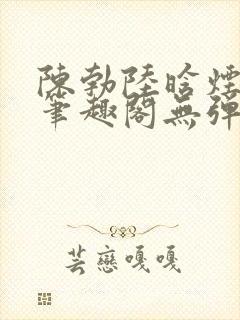 陳勃陸晗煙
筆趣閣無彈
芸戀嘎嘎